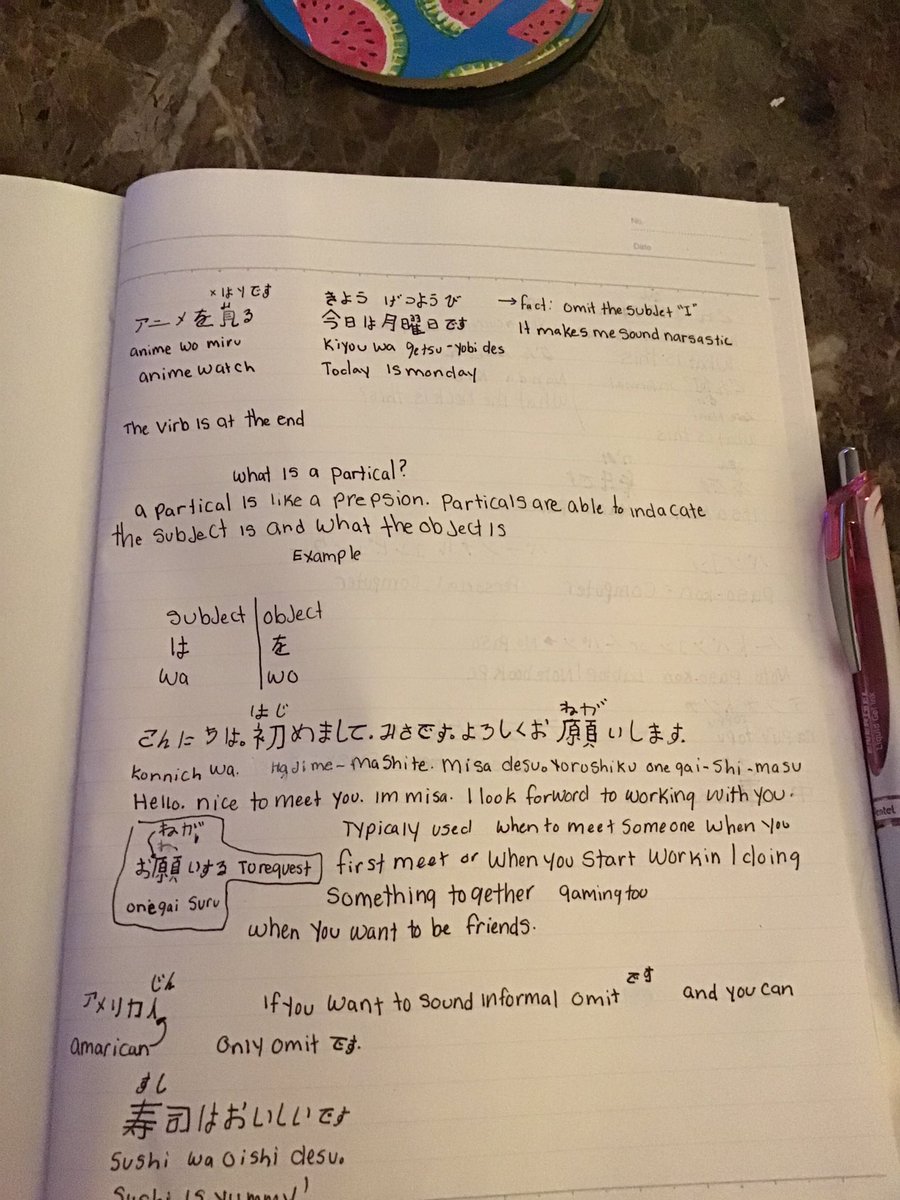 No.
Date
×はYです
アニメを見る
anime wo miru
anime watch
きよう げつようび
今日は月曜日です
Kiyou wa getsu-yobi des
Today is monday
→fact: omit the subjet "I"
It makes me sound narsastic
The virb is at the end
what is a partical?
a partical is like a prepsion. Particals are able to indacate
the subject is and what the object is
Example
subject | object
は | を
wa | wo
はじ ねが
こんにちは。初めまして.みさです。よろしくお願いします.
Konnich wa. Hajime-mashite. misa desu。Yoroshiku onegai-shi-masu
Hello. nice to meet you. Im misa. I look forward to working with you.
ねが
お願いする To request
onegai suru
Typicaly used when to meet someone when you
first meet or when you start workin / doing
something together gaming too
when you want to be friends.
じん
アメリカ人
amarican
If you want to sound informal omit です and you can
only omit です.
すし
寿司はおいしいです
Sushi wa oishi desu。
Sushi is yummy!
Pentel